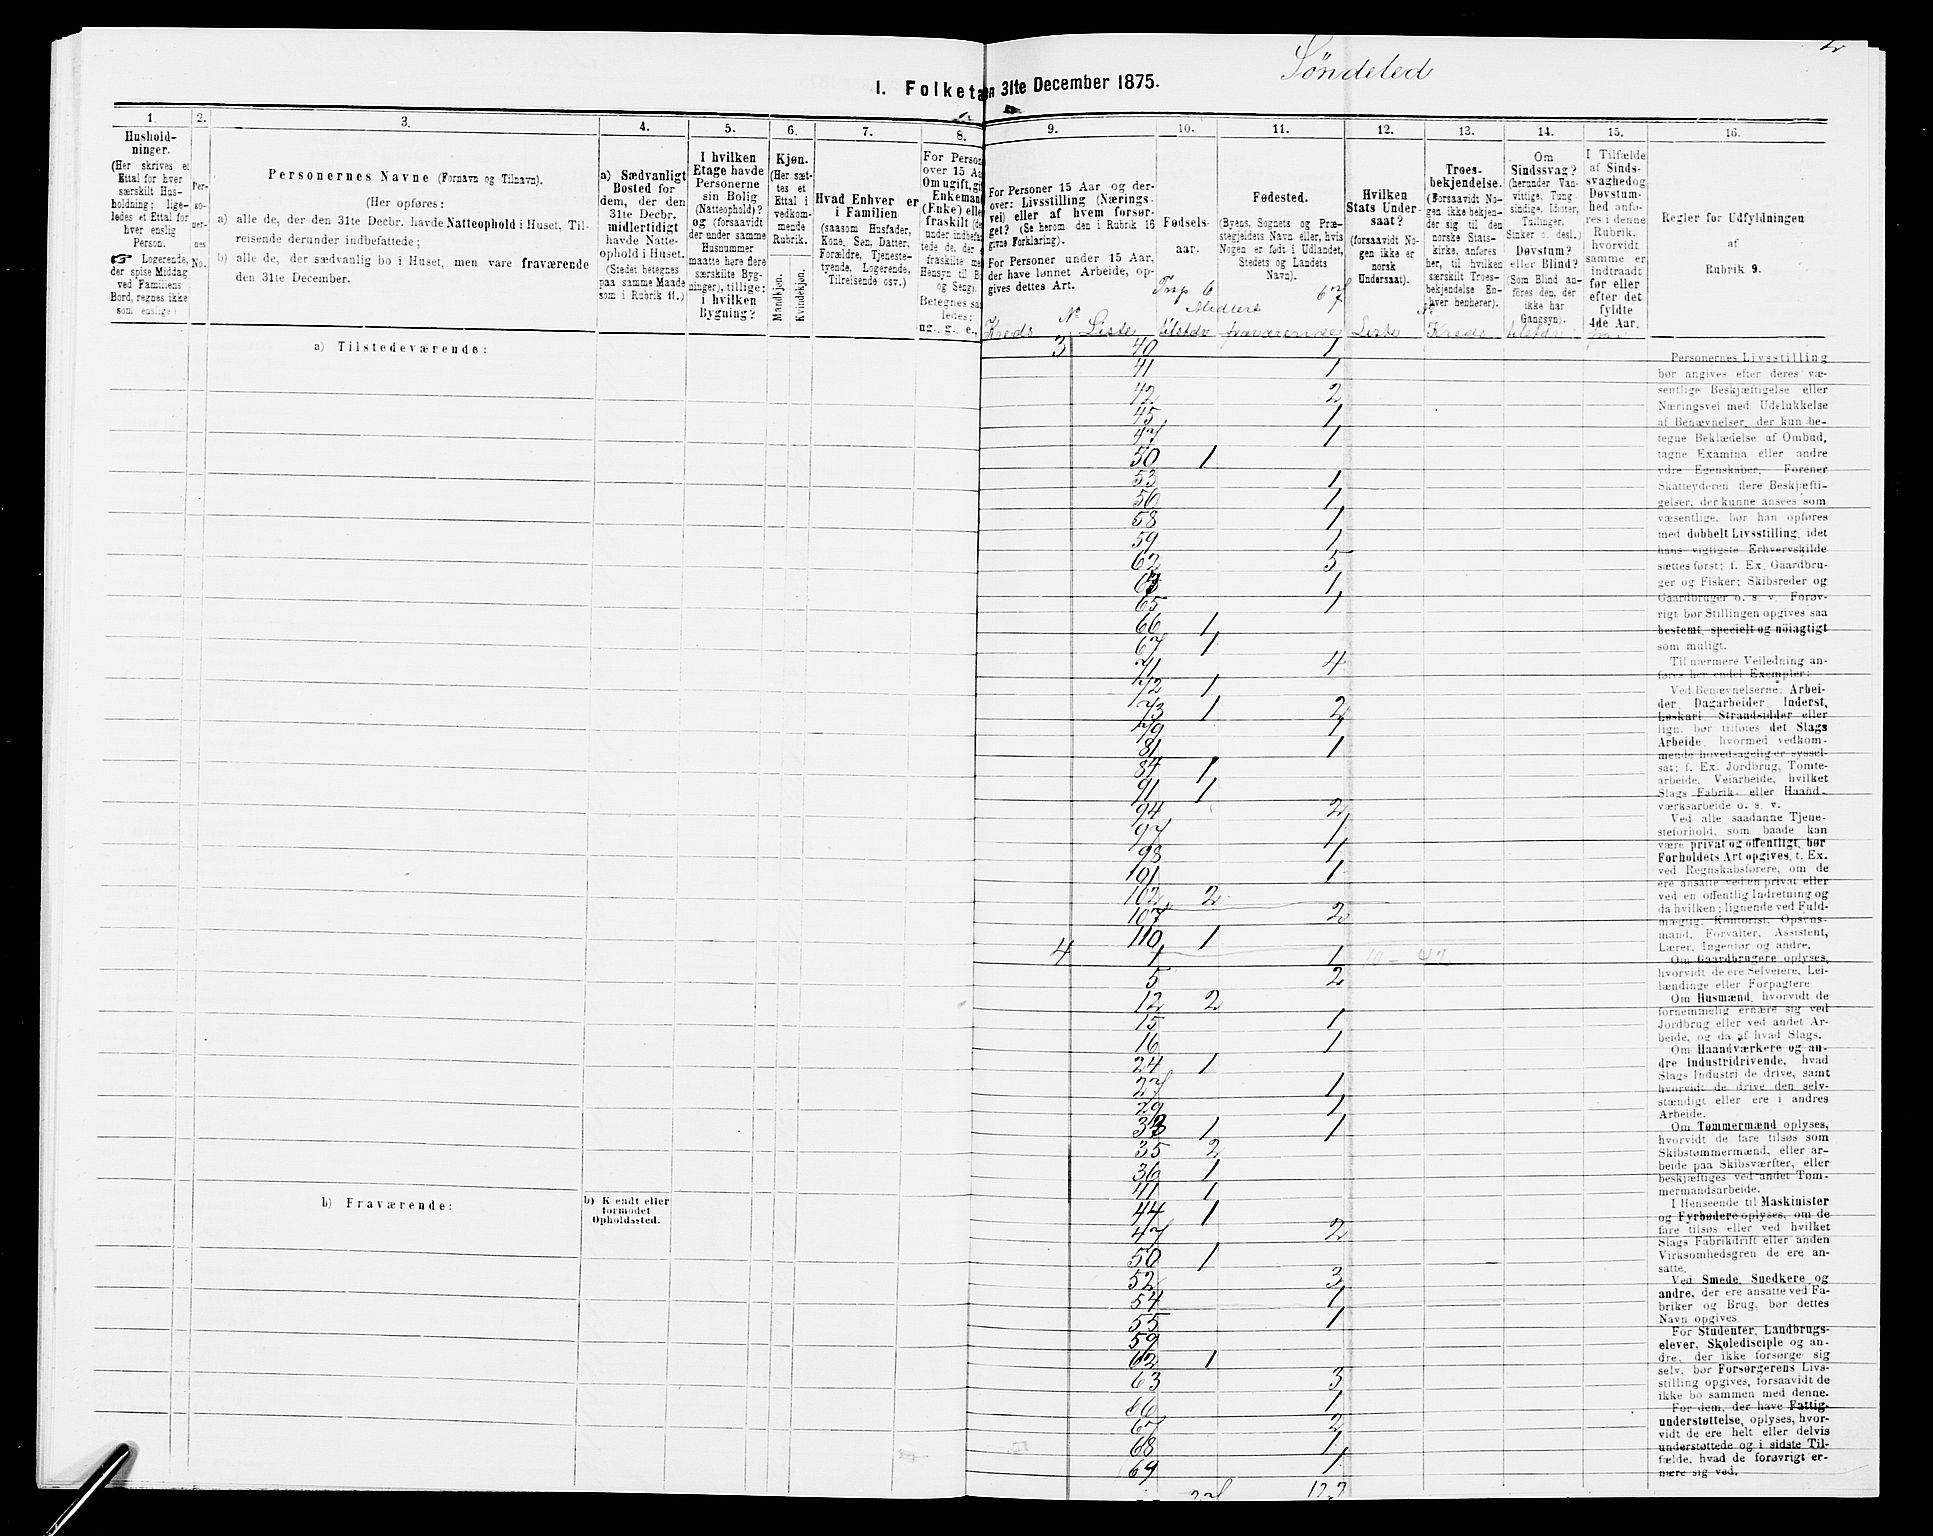 Söndeled
I. Folketæ
en 31te December 1875.
1. 2. 3. 4. 5. 6. 7. 8. 9. 10. 11. 12. 13. 14. 15. 16.
Hushold-
ninger.
(Her skrives et
Ettal for hver
særskilt Hus-
holdning; lige-
ledes et Ettal for
hver enslig
Person.
☞ Logerende,
der spise Middag
ved Familiens
Bord, regnes ikke
som enslige.)
Per-
so-
ner-
nes
No.
Personernes Navne (Fornavn og Tilnavn).
(Her opføres:
a) alle de, der den 31te Decbr. havde Natteophold i Huset, Til-
reisende derunder indbefattede;
b) alle de, der sædvanlig bo i Huset, men vare fraværende
den 31te December.
a) Sædvanligt
Bosted for
dem, der den
31te Decbr.
midlertidigt
havde Natte-
ophold i Huset.
(Stedet betegnes
paa samme Maade
som i Rubrik 11.)
I hvilken
Etage havde
Personerne
sin Bolig
(Natteophold)?
og (forsaavidt
der under samme
Husnummer
maatte høre flere
særskilte Byg-
ninger), tillige:
i hvilken
Bygning?
Kjøn.
(Her sæt-
tes et
Ettal i
vedkom-
mende
Rubrik.
Mandkjøn.
Kvindekjøn.
Hvad Enhver er
i Familien
(saasom Husfader,
Kone, Søn, Datter,
Forældre, Tjeneste-
tyende, Logerende,
Tilreisende osv.)
For Person
over 15 Aa
Om ugift, gif
Enkeman
(Enke) elle
fraskilt (de
under indbefat
tede de, der e
fraskilte me
Hensyn til B
og Seng).
Betegnes saa
ledes:
ug., g., e.,
For Personer 15 Aar og der-
over: Livsstilling (Nærings-
vei) eller af hvem forsør-
get? (Se herom den i Rubrik 16
givne Forklaring).
For Personer under 15 Aar,
der have lønnet Arbeide, op-
gives dettes Art.
Fødsels-
aar.
Fødested.
(Byens, Sognets og Præ-
stegjeldets Navn eller, hvis
Nogen er født i Udlandet,
Stedets og Landets
Navn).
Hvilken
Stats Under-
saat?
(forsaavidt No-
gen ikke er
norsk
Undersaat).
Troes-
bekjendelse.
(Forsaavidt No-
gen ikke bekjen-
der sig til den
norske Stats-
kirke, anføres
her, til hvilken
særskilt Troes-
bekjendelse En-
hver henhører).
Om
Sindssvag?
(herunder Van-
vittige, Tung-
sindige, Idioter,
Tullinger,
Sinker o. desl.)
Døvstum?
eller Blind?
(Som Blind an-
føres den, der
ikke har
Gangsyn).
I Tilfælde
af Sinds-
svaghed og
Døvstum-
hed anfø-
res i denne
Rubrik,
hvorvidt
samme er
indtraadt
før eller
efter det
fyldte
4de Aar.
Regler for Udfyldningen
af
Rubrik 9.
6 67
Midlert
Kreds № Liste tilstdv fraværende Liste № Kreds tilstdv
a) Tilstedeværende:
3 40 1
41 1
42 2
45 1
47 1
50 1
53 1
56 1
58 1
59 1
62 5
63 1
65 1
66 1
67 1
71 4
72 1
73 1 2
79 1
81 1
84 1
91 1
94 2
97 1
98 1
101 1
102 2
107 2
110 1
4 1 1 10 – 47
5 2
12 2
15 1
16 1
24 1
27 1
29 1
33 1 1
35 2
36 1
41 1
44 1
47 2
50 1
52 3
54 1
55 1
59
62 1
63 3
66 1
67 2
68 1
69 1
b) Fraværende:
b) Kjendt eller
formodet
Opholdssted.
Personernes Livsstilling
bør angives efter deres væ-
sentlige Beskjæftigelse eller
Næringsvei med Udelukkelse
af Benævnelser, der kun be-
tegne Beklædelse af Ombud,
tagne Examina eller andre
ydre Egenskaber. Forener
Skatteyderen flere Beskjæfti-
gelser, der kunne ansees som
væsentlige, bør han opføres
med dobbelt Livsstilling, idet
hans vigtigste Erhvervskilde
sættes først; f. Ex. Gaardbru-
ger og Fisker; Skibsreder og
Gaardbruger o. s. v. Forøv-
rigt bør Stillingen opgives saa
bestemt, specielt og nöiagtigt
som muligt.
Til nærmere Veiledning an-
føres her endel Exempler:
Ved Benævnelserne: Arbei-
der, Dagarbeider, Inderst,
Løskarl, Strandsidder eller
lign. bør tilføies det Slags
Arbeide, hvormed vedkom-
mende hovedsagelig er syssel-
sat; f. Ex. Jordbrug, Tomte-
arbeide, Veiarbeide, hvilket
Slags Fabrik- eller Haand-
værksarbeide o. s. v.
Ved alle saadanne Tjene-
steforhold, som baade kan
være privat og offentligt, bør
Forholdets Art opgives, t. Ex.
ved Regnskabsførere, om de
ere ansatte ved en privat eller
ved en offentlig Indretning og
da hvilken; lignende ved Fuld-
mægtig, Kontorist, Opsyns-
mand, Forvalter, Assistent,
Lærer, Ingeniør og andre.
Om Gaardbrugere oplyses,
hvorvidt de ere Selveiere, Lei-
lændinge eller Forpagtere
Om Husmænd, hvorvidt de
fornemmelig ernære sig ved
Jordbrug eller ved andet Ar-
beide, og da af hvad Slags.
Om Haandværkere og an-
dre Industridrivende, hvad
Slags Industri de drive, samt
hvorvidt de drive den selv-
stændigt eller ere i andres
Arbeide.
Om Tømmermænd oplyses,
hvorvidt de fare tilsøs som
Skibstømmermænd, eller ar-
beide paa Skibsværfter, eller
beskjæftiges ved andet Tøm-
mermandsarbeide.
I Henseende til Maskinister
og Fyrbødere oplyses, om de
fare tilsøs eller ved hvilket
Slags Fabrikdrift eller anden
Virksomhedsgren de ere an-
satte.
Ved Smede, Snedkere og
andre, der ere ansatte ved Fa-
briker og Brug, bør dettes
Navn opgives.
For Studenter, Landbrugs-
elever, Skoledisciple og an-
dre, der ikke forsørge sig
selv, bør Forsørgerens Livs-
stilling opgives, forsaavidt de
ikke bo sammen med denne.
For dem, der have Fattig-
understøttelse, oplyses, hvor-
vidt de ere helt eller delvis
understøttede og i sidste Til-
fælde, hvad de forøvrigt er-
nære sig ved.